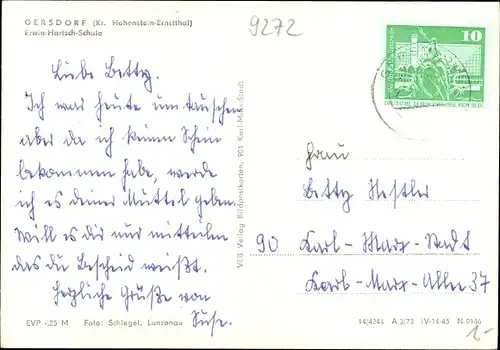 GERSDORF (Kr. Hohenstein-Ernstthal)
Erwin-Hartsch-Schule
9272
10
DEUTSCHE DEMOKRATISCHE REPUBLIK
Liebe Betty.
Ich war heute umtauschen
aber da ich keinen Schein
bekommen habe, werde
ich es deiner Muttel geben.
Will es dir nur mitteilen
das du Bescheid weißt.
Herzliche Grüße von
Suse.
VEB Verlag Bildpostkarten, 901 Karl-Marx-Stadt
Frau
Betty Hestler
90 Karl-Marx-Stadt
Karl-Marx-Allee 37
EVP -,25 M Foto: Schlegel, Lunzenau
14/4244 A 3/73 IV-14-45 N 9146